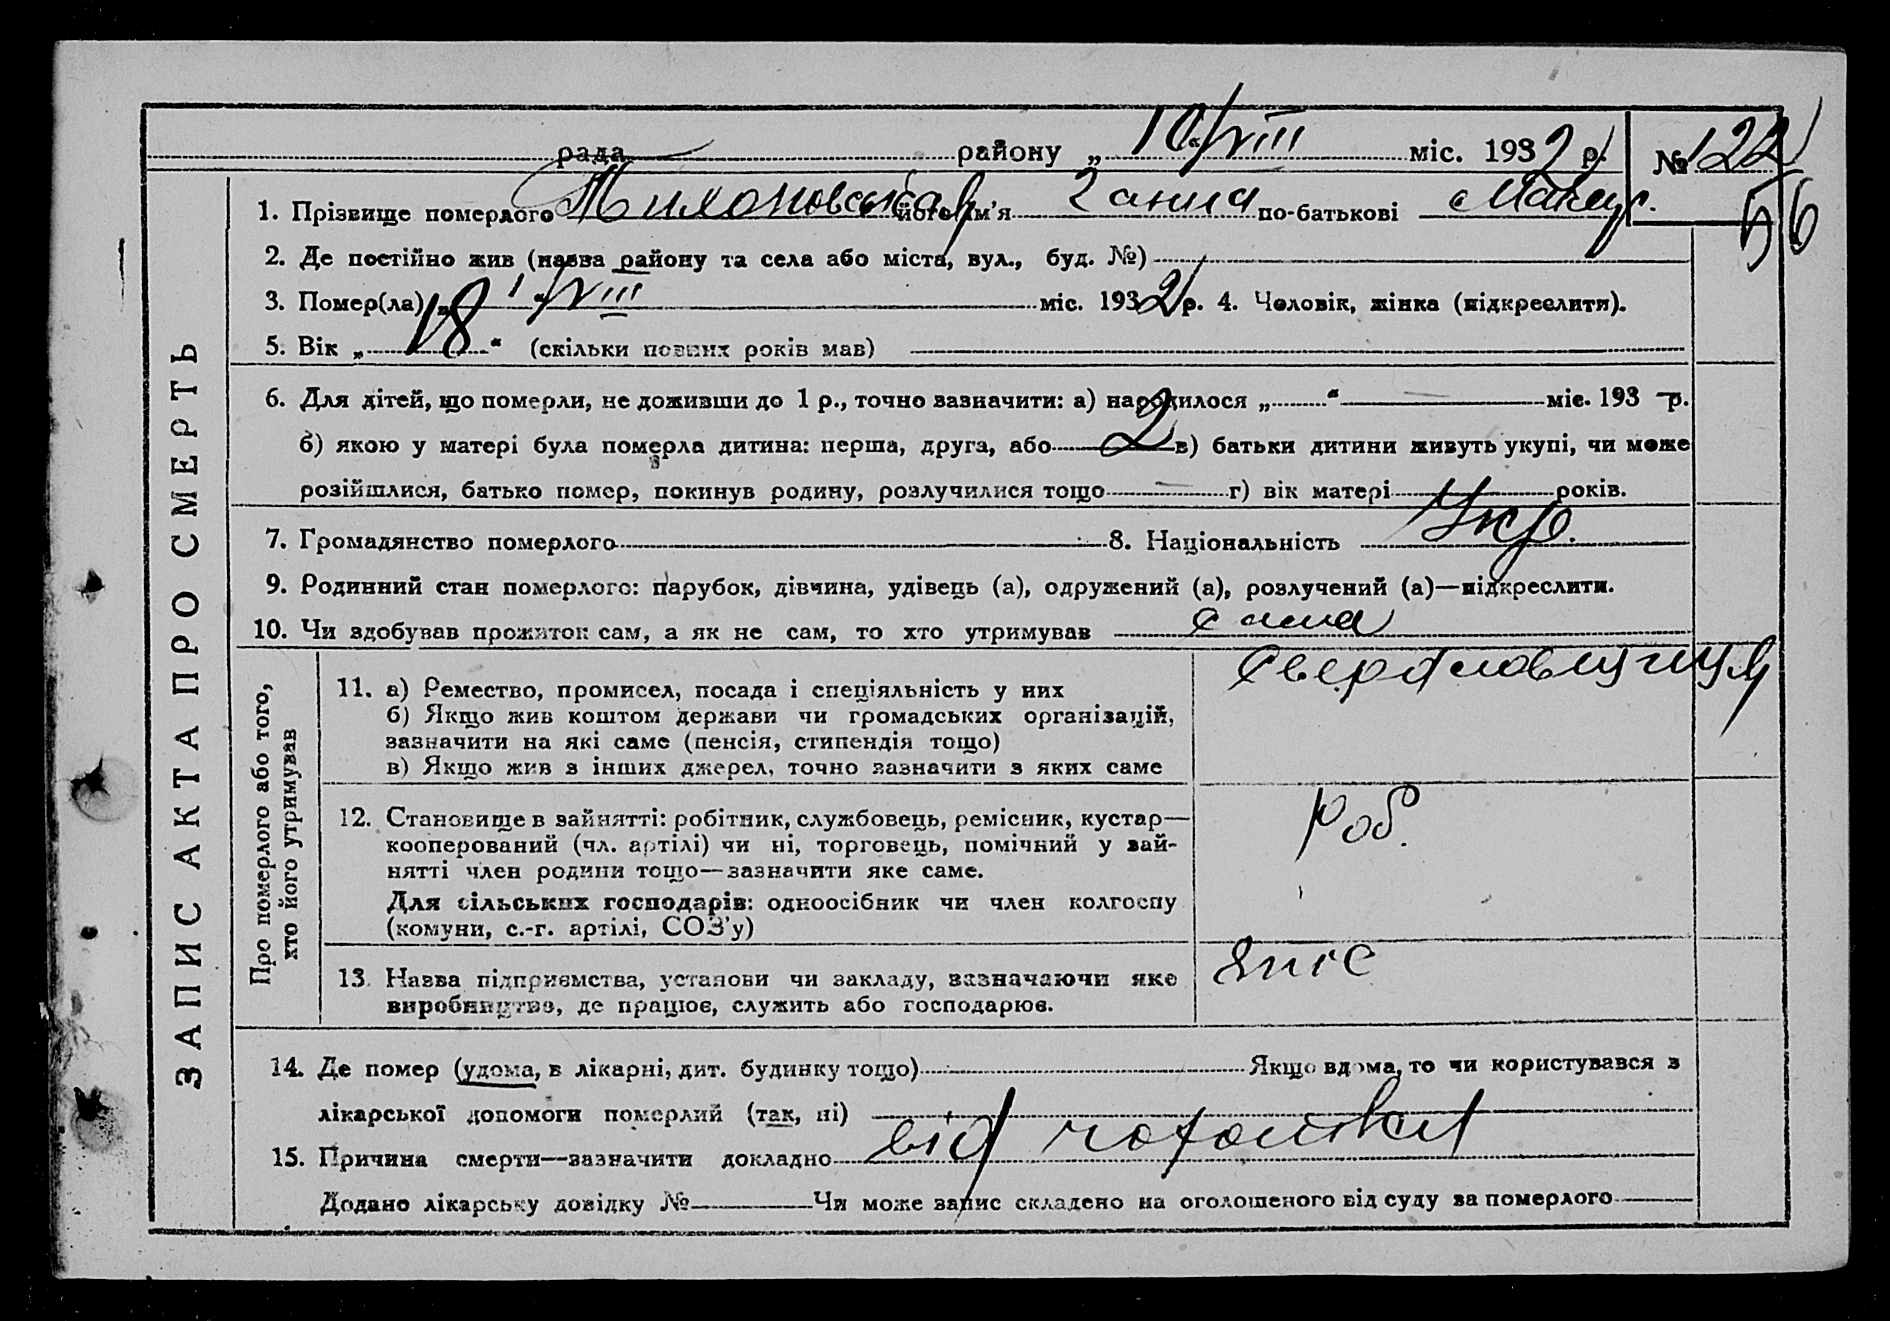 рада району „ 10/VIII міс. 1932 р. № 122
56
1. Прізвище померлого Тихоновська його ім'я Ганна по-батькові Макар.
2. Де постійно жив (назва району та села або міста, вул., буд. №)
3. Помер(ла) „ 1 “ /VIII міс. 1932 р. 4. Чоловік, жінка (підкреслити).
5. Вік „ 18 “ (скільки повних років мав)
6. Для дітей, що померли, не доживши до 1 р., точно зазначити: а) народилося „ “ — міс. 193 — р.
б) якою у матері була померла дитина: перша, друга, або 2 в) батьки дитини живуть укупі, чи може
розійшлися, батько помер, покинув родину, розлучилися тощо — г) вік матері років.
7. Громадянство померлого 8. Національність Укр.
9. Родинний стан померлого: парубок, дівчина, удівець (а), одружений (а), розлучений (а)—підкреслити.
10. Чи здобував прожиток сам, а як не сам, то хто утримував сама
ЗАПИС АКТА ПРО СМЕРТЬ
Про померлого або того,
хто його утримував
11. а) Ремество, промисел, посада і спеціяльність у них
б) Якщо жив коштом держави чи громадських організацій,
зазначити на які саме (пенсія, стипендія тощо)
в) Якщо жив з інших джерел, точно зазначити з яких саме
12. Становище в зайнятті: робітник, службовець, ремісник, кустар—
кооперований (чл. артілі) чи ні, торговець, помічний у зай-
нятті член родини тощо—зазначити яке саме.
Для сільських господарів: одноосібник чи член колгоспу
(комуни, с.-г. артілі, СОЗ'у)
роб.
13. Назва підприємства, установи чи закладу, зазначаючи яке
виробництво, де працює, служить або господарює.
14. Де помер (удома, в лікарні, дит. будинку тощо) Якщо вдома, то чи користувався з
лікарської допомоги померлий (так, ні)
15. Причина смерти—зазначити докладно від
Додано лікарську довідку № Чи може запис складено на оголошеного від суду за померлого